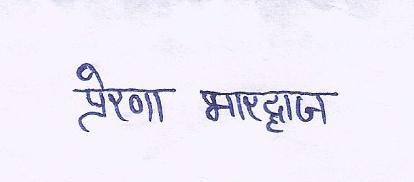 प्रेरणा भारद्वाज